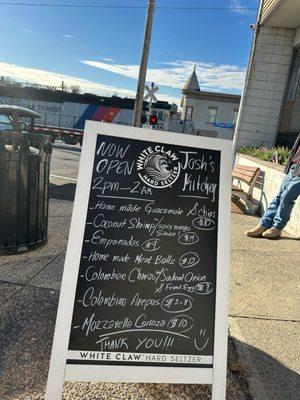 NJ TRANSIT
NOW OPEN
2pm-2AM
WHITE CLAW
HARD SELZTER
Josh's
Kitchen
- Home made Guacamole & Chips $10
- Coconut Shrimp w/ spicy mango Su
- Empanadas $9
- Home made Meat Balls $12
- Colombian Chorizo
& Fried Egg
- Colombian Arepas $5-8
- Mozzarella Carroza $10
THANK YOU!!!
WHITE CLAW HARD SELTZER